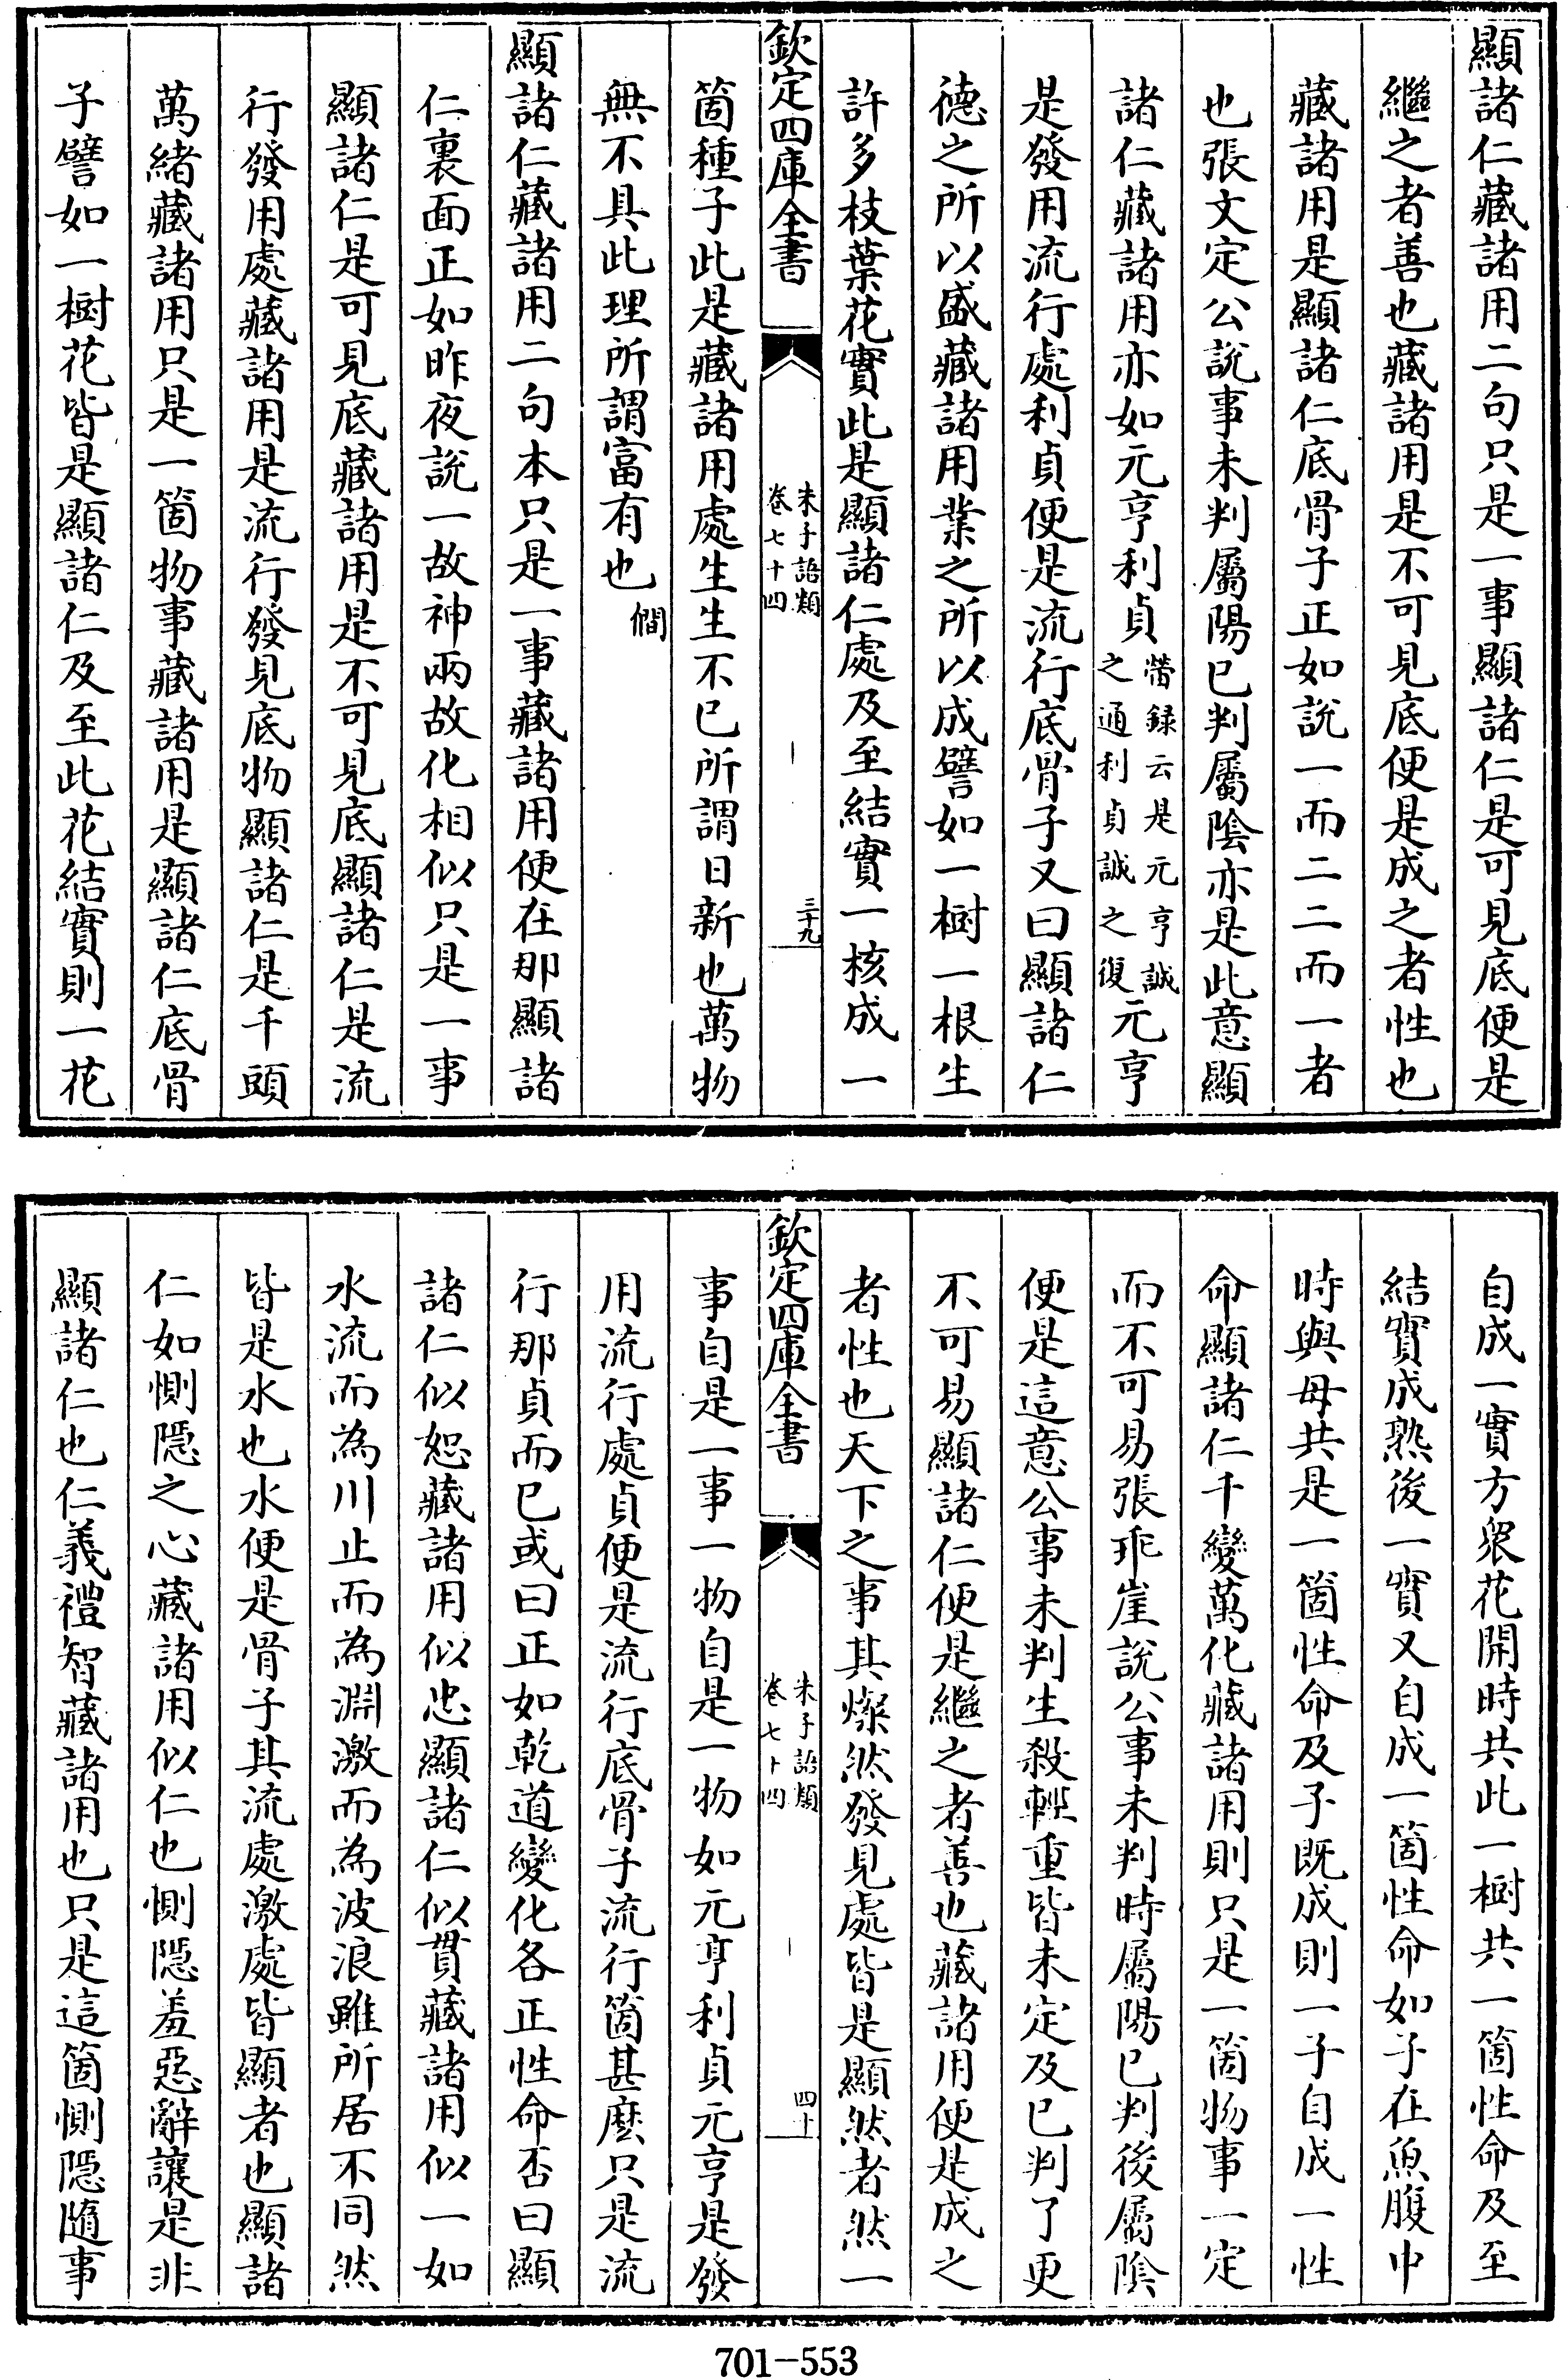 顯諸仁藏諸用二句只是一事顯諸仁是可見底便是
繼之者善也藏諸用是不可見底便是成之者性也
藏諸用是顯諸仁底骨子正如說一而二二而一者
也張文定公說事未判屬陽已判屬陰亦是此意顯
諸仁藏諸用亦如元亨利貞㽦録云是元亨誠之通利貞誠之復元亨
是發用流行處利貞便是流行底骨子又曰顯諸仁
德之所以盛藏諸用業之所以成譬如一樹一根生
許多枝葉花實此是顯諸仁處及至結實一核成一
欽定四庫全書
朱子語類
卷七十四
三十九
箇種子此是藏諸用處生生不已所謂日新也萬物
無不具此理所謂富有也㒓
顯諸仁藏諸用二句本只是一事藏諸用便在那顯諸
仁裏面正如昨夜說一故神兩故化相似只是一事
顯諸仁是可見底藏諸用是不可見底顯諸仁是流
行發用處藏諸用是流行發見底物顯諸仁是千頭
萬緒藏諸用只是一箇物事藏諸用是顯諸仁底骨
子譬如一樹花皆是顯諸仁及至此花結實則一花
自成一實方衆花開時共此一樹共一箇性命及至
結實成熟後一實又自成一箇性命如子在魚腹中
時與母共是一箇性命及子既成則一子自成一性
命顯諸仁千變萬化藏諸用則只是一箇物事一定
而不可易張乖崖說公事未判時屬陽已判後屬陰
便是這意公事未判生殺輕重皆未定及已判了更
不可易顯諸仁便是繼之者善也藏諸用便是成之
者性也天下之事其燦然發見處皆是顯然者然一
欽定四庫全書
朱子語類
卷七十四
四十
事自是一事一物自是一物如元亨利貞元亨是發
用流行處貞便是流行底骨子流行箇甚麽只是流
行那貞而已或曰正如乾道變化各正性命否曰顯
諸仁似恕藏諸用似忠顯諸仁似貫藏諸用似一如
水流而為川止而為淵激而為波浪雖所居不同然
皆是水也水便是骨子其流處激處皆顯者也顯諸
仁如惻隱之心藏諸用似仁也惻隱羞惡辭讓是非
顯諸仁也仁義禮智藏諸用也只是這箇惻隱隨事
701-553